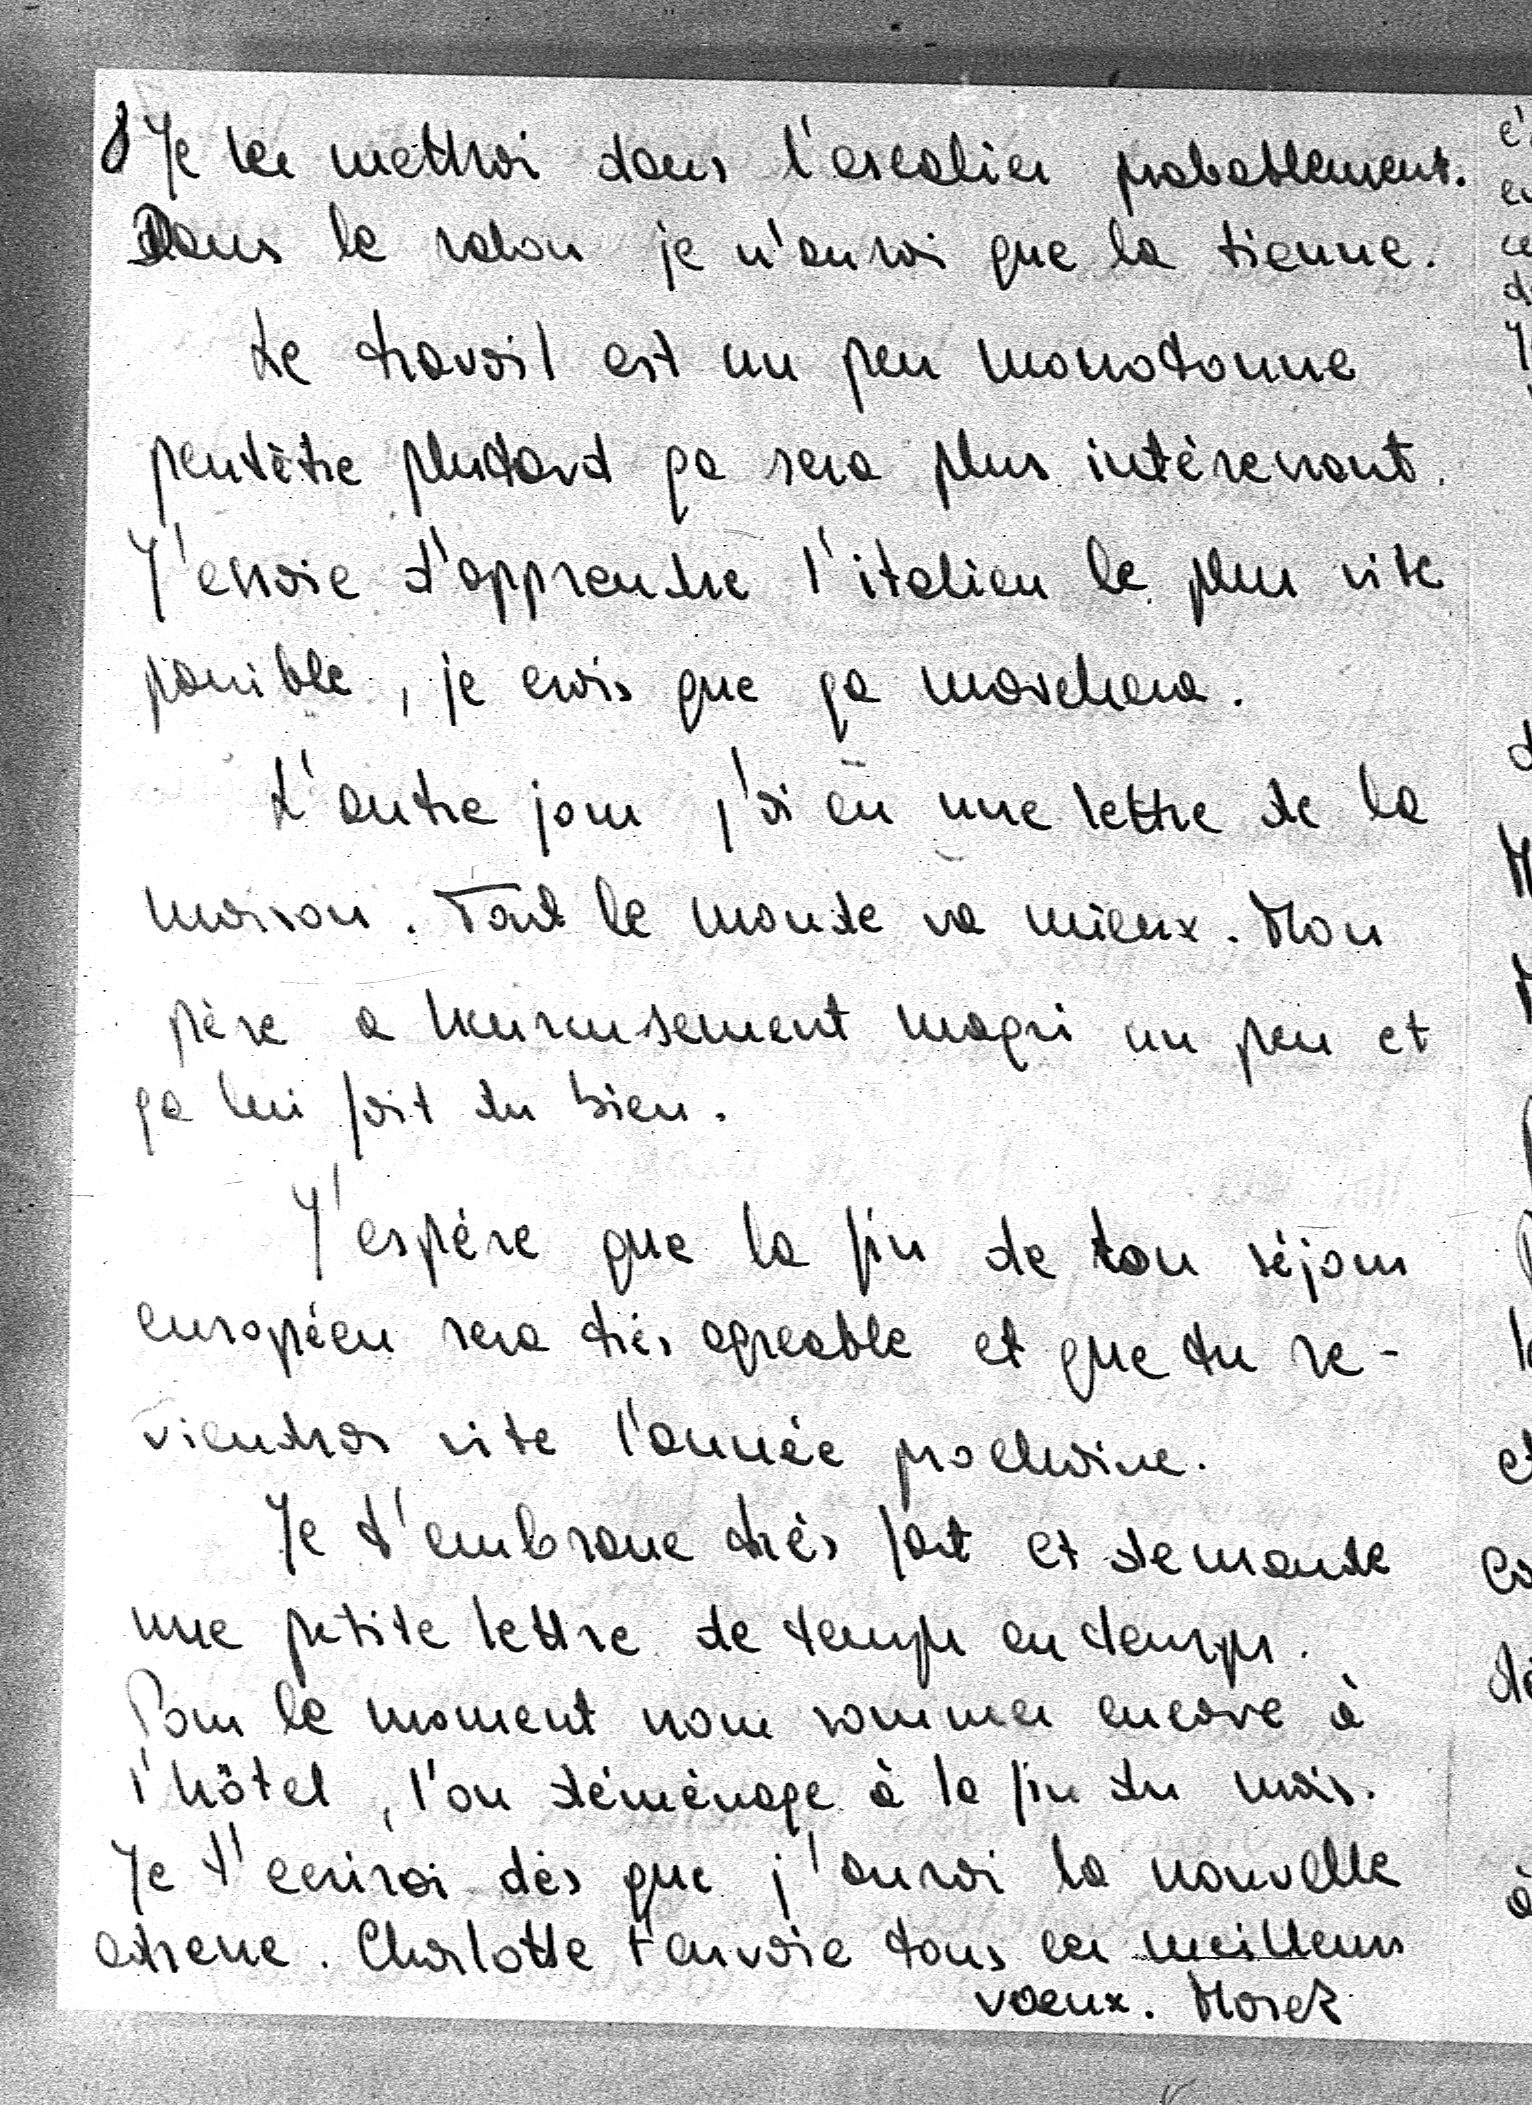 8 Je les mettrai dans l'escalier probablement.
Dans le salon je n'aurai que la tienne.
Le travail est un peu monotonne
peutètre plutard ça sera plus intèressant.
J'essaie d'apprendre l'italien le plus vite
possible, je crois que ça marchera.
L'autre jour j'ai eu une lettre de la
maison. Tout le monde va mieux. Mon
père a heureusement magri un peu et
ça lui fait du bien.
J'espére que la fin de ton séjour
européen sera très agreable et que tu re-
viendras vite l'année prochaine.
Je t'embrasse très fort et demande
une petite lettre de temps en temps.
Pour le moment nous sommes encore à
l'hôtel, l'on déménage à la fin du mois.
Je t'ecrirai dès que j'aurai la nouvelle
adresse. Charlotte t'envoie tous les meilleurs
voeux. Marek